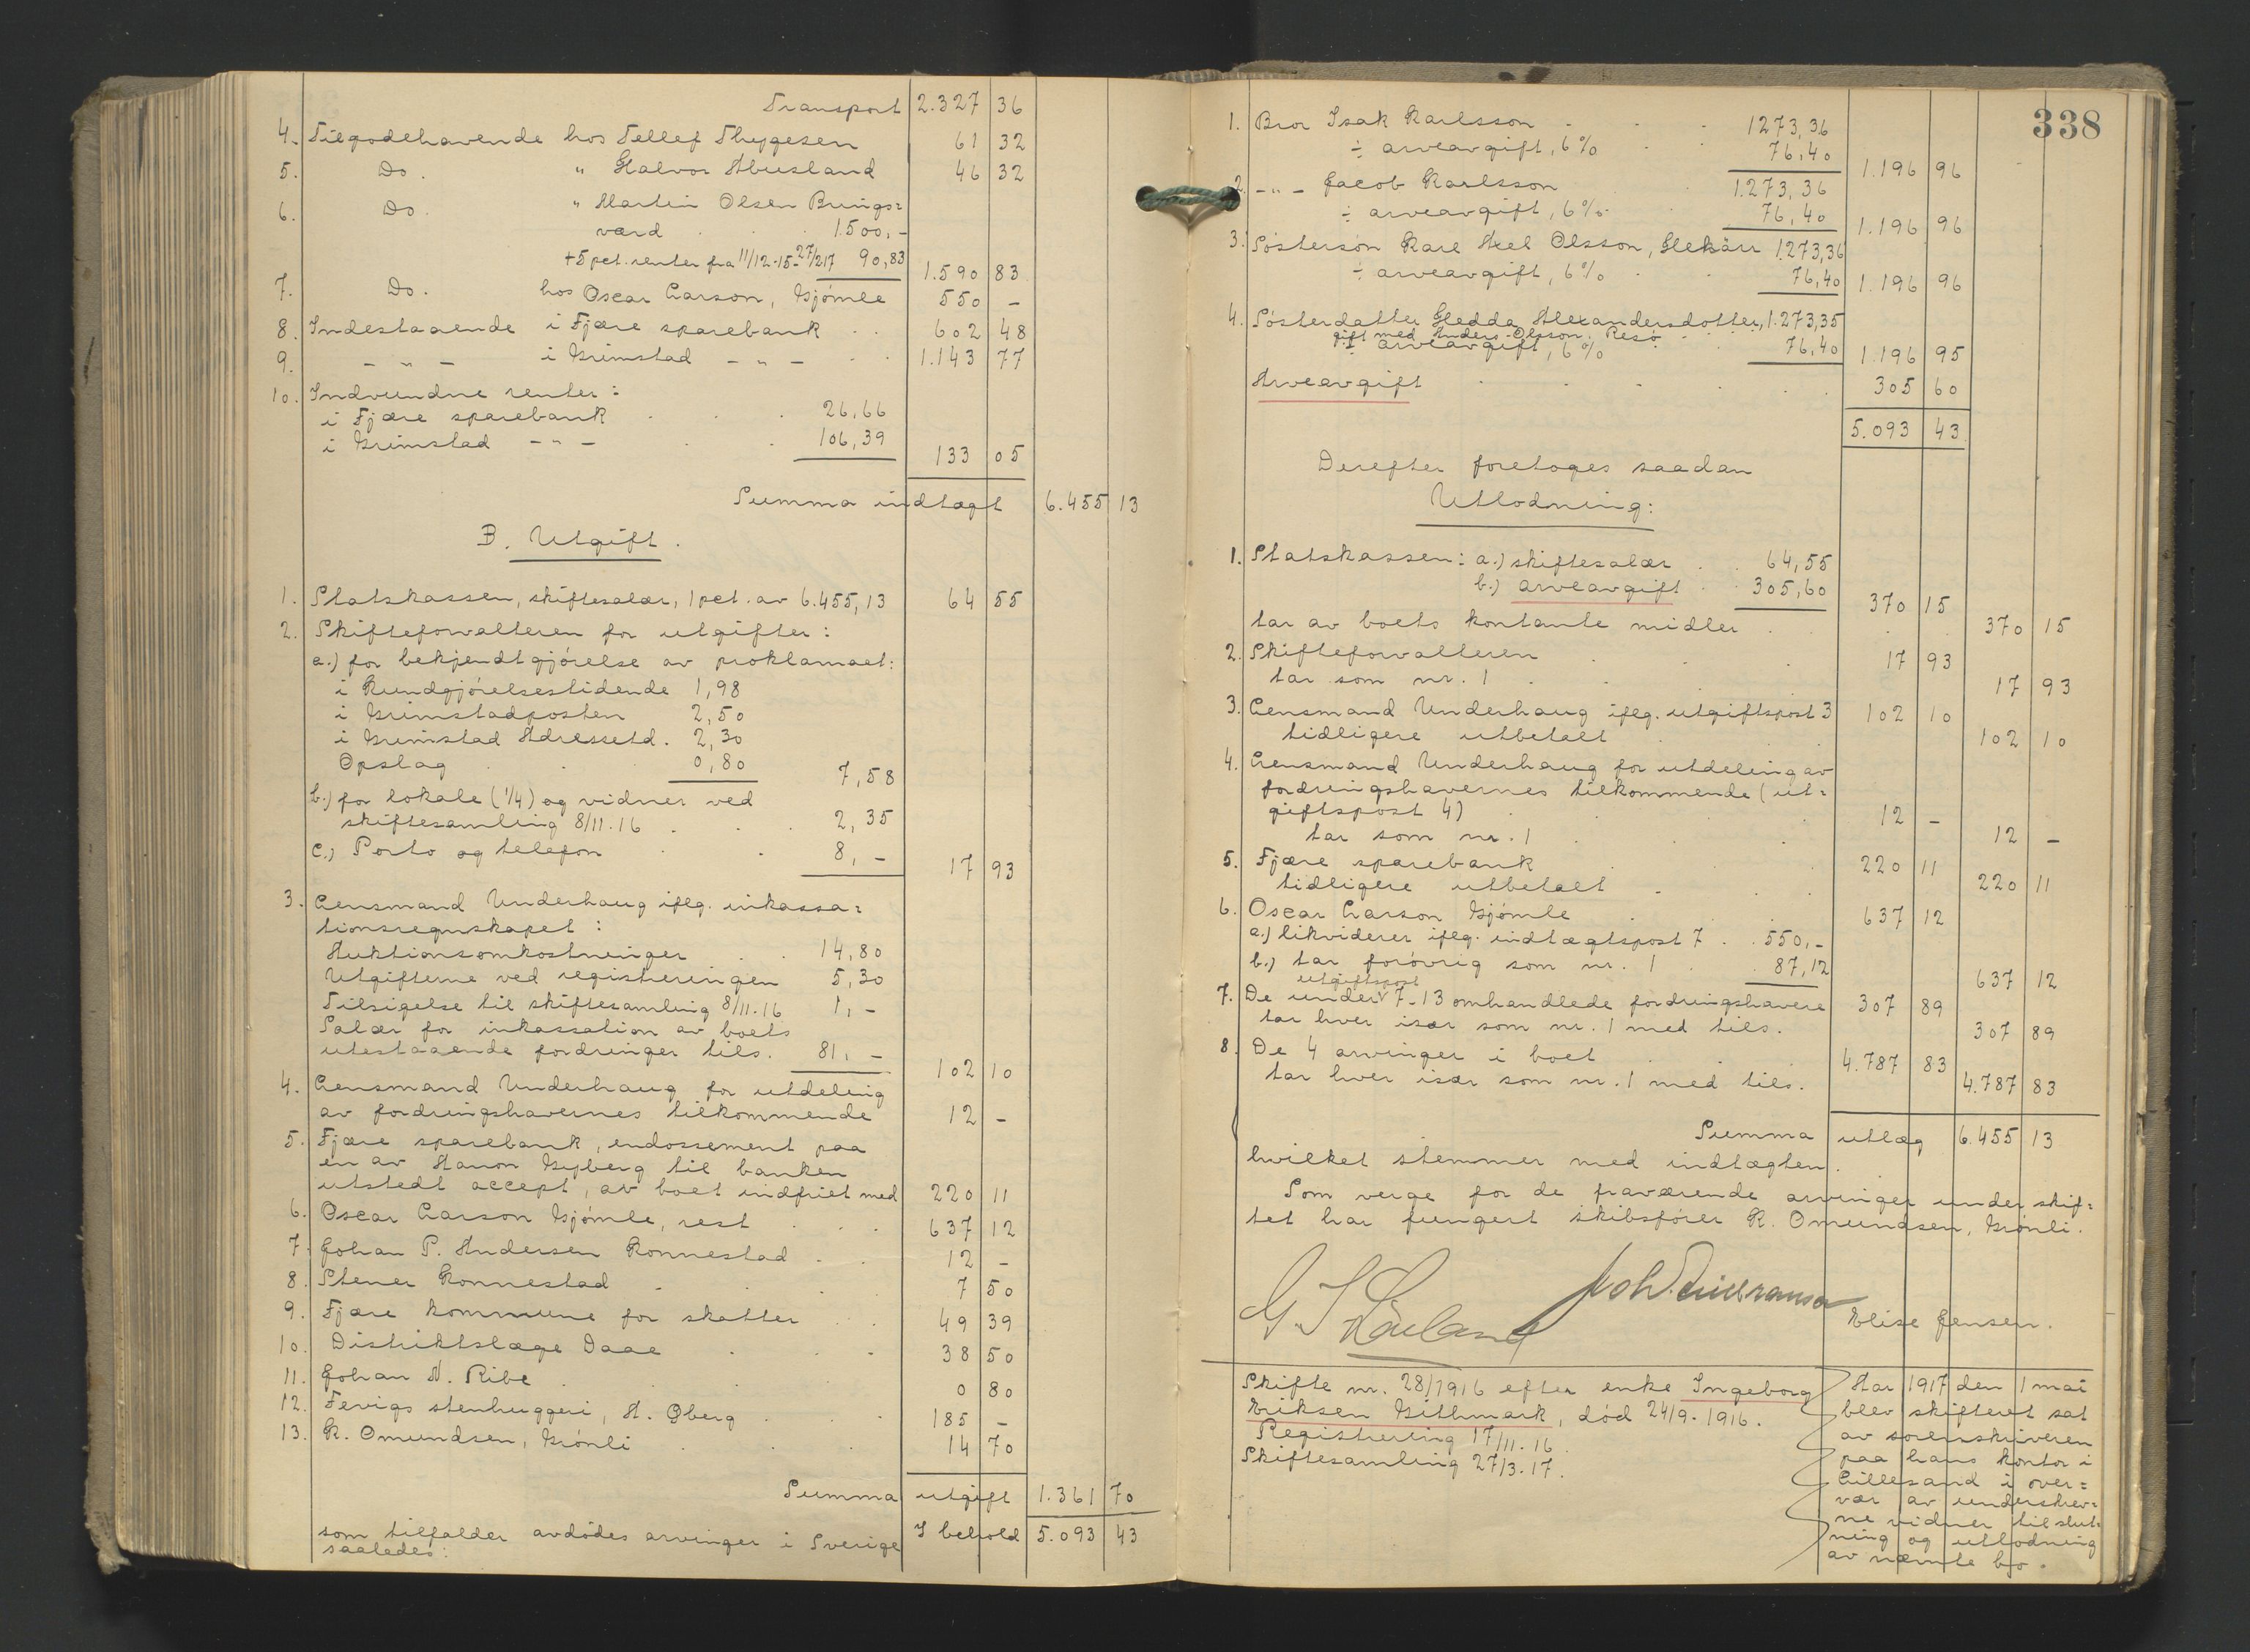 Transport 2.327 36
4. Tilgodehavende hos Tellef Thygesen 61 32
5. Do. " Halvor Abusland 46 32
6. Do. " Martin Olsen Brings=
værd 1.500,-
+ 5 pct. renter fra 11/12-15-27/217 90,83 1.590 83
7. Do. hos Oscar Larson, Gjömle 550 -
8. Indestaaende i Fjære sparebank 602 48
9. - " - i Grimstad - " - 1.143 77
10. Indvundne renter:
i Fjære sparebank 26,66
i Grimstad - " - 106,39 133 05
Summa indtægt 6.455 13
B. Utgift.
1. Statskassen, skiftesalær, 1 pct. av 6.455,13 64 55
2. Skifteforvalteren for utgifter:
a.) for bekjendtgjörelse av proklamaet:
i Kundgjörelsestidende 1,98
i Grimstadposten 2,50
i Grimstad Adressetd. 2,30
Opslag 0,80 7,58
b.) for lokale (1/4) og vidner ved
skiftesamling 8/11.16 2,35
c.) Porto og telefon 8,- 17 93
3. Lensmand Underhaug ifølg. inkassa=
tionsregnskapet:
Auktionsomkostninger 14,80
Utgifterne ved registreringen 5,30
Tilsigelse til skiftesamling 8/11.16 1,-
Salær for inkassation av boets
utestaaende fordringer tils. 81,- 102 10
4. Lensmand Underhaug for utdeling
av fordringshavernes tilkommende 12 -
5. Fjære sparebank, endossement paa
en av Hanon Nyberg til banken
utstedt accept, av boet indfriet med 220 11
6. Oscar Larson Gjömle, rest 637 12
7. Johan P. Andersen Ronnestad 12 -
8. Stener Ronnestad 7 50
9. Fjære kommune for skatter 49 39
10. Distriktslæge Daae 38 50
11. Johan N. Ribe 0 80
12. Fevigs stenhuggeri, A. Öberg 185 -
13. K. Omundsen, Grönli 14 70
Summa utgift 1.361 70
I behold 5.093 43
som tilfalder avdödes arvinger i Sverige
saaledes:
338
1. Bror Isak Karlsson 1273,36
÷ arveavgift, 6% 76,40 1.196 96
2. - " - Jacob Karlsson 1.273,36
÷ arveavgift, 6% 76,40 1.196 96
3. Søstersön Karl Axel Olsson, Slekärr 1.273,36
÷ arveavgift, 6% 76,40 1.196 96
4. Søsterdatter Hedda Alexandersdotter, 1.273,35
gift med Anders Olsson, Resö
÷ arveavgift, 6% 76,40 1.196 95
Arveavgift 305 60
5.093 43
Derefter foretoges saadan
Utlodning:
1. Statskassen: a.) skiftesalær 64,55
b.) arveavgift 305,60 370 15
tar av boets kontante midler 370 15
2. Skifteforvalteren 17 93
tar som nr. 1 17 93
3. Lensmand Underhaug ifølg. utgiftspost 3 102 10
tidligere utbetalt 102 10
4. Lensmand Underhaug for utdeling av
fordringshavernes tilkommende (ut=
giftspost 4) 12 -
tar som nr. 1 12 -
5. Fjære sparebank 220 11
tidligere utbetalt 220 11
6. Oscar Larson Gjömle 637 12
a.) likviderer ifølg. indtægtspost 7 550,-
b.) tar forövrig som nr. 1 87,12 637 12
utgiftspost
7. De under 7-13 omhandlede fordringshavere 307 89
tar hver især som nr. 1 med tils. 307 89
8. De 4 arvinger i boet 4.787 83
tar hver især som nr. 1 med tils. 4.787 83
Summa utlæg 6.455 13
hvilket stemmer med indtægten.
Som verge for de fraværende arvinger under skif=
tet har fungert skibsförer K. Omundsen, Grönli.
Elise Jensen.
Skifte nr. 28/1916 efter enke Ingeborg
Eriksen Githmark, död 24/9.1916.
Registrering 17/11.16.
Skiftesamling 27/3.17.
Aar 1917 den 1 mai
blev skifteret sat
av sorenskriveren
paa hans kontor i
Lillesand i over=
vær av underskrev=
ne vidner til slut=
ning og utlodning
av nævnte bo.